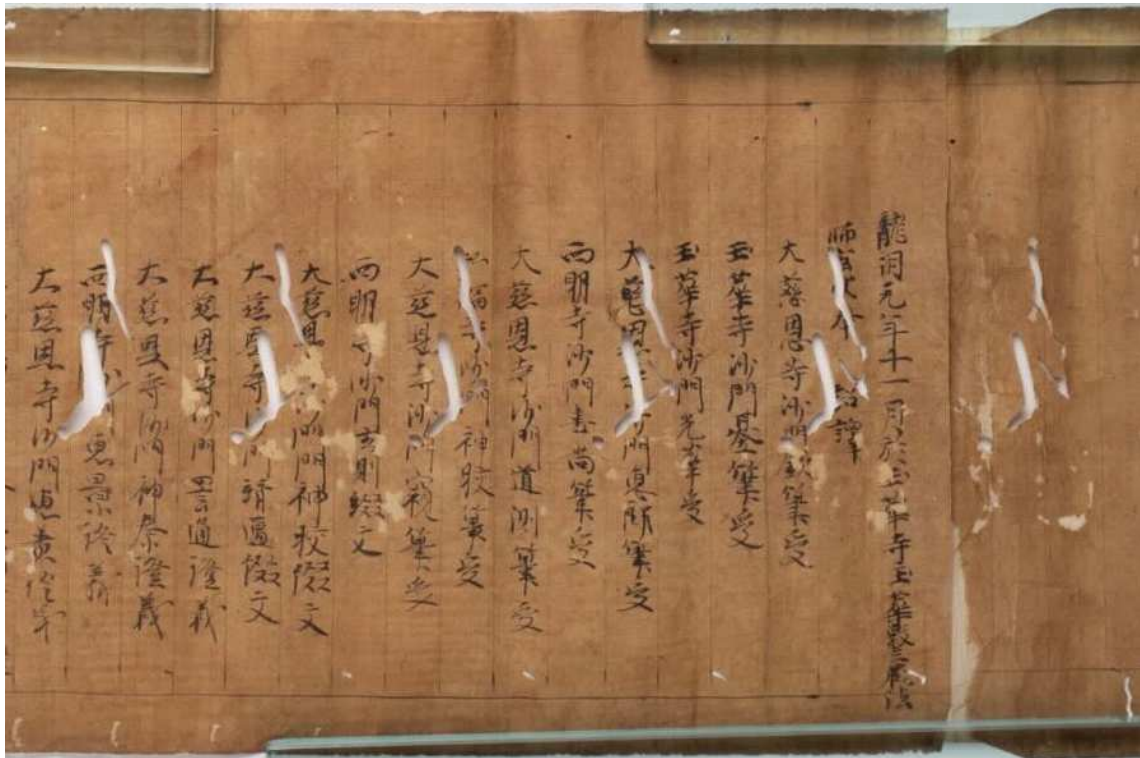 龍朔元年十一月於玉華寺玉華殿三藏法
師玄奘奉 詔譯
大慈恩寺沙門欽筆受
玉華寺沙門基筆受
玉華寺沙門光筆受
大慈恩寺沙門慧朗筆受
西明寺沙門嘉尚筆受
大慈恩寺沙門道測筆受
弘福寺沙門神皎筆受
大慈恩寺沙門窺筆受
西明寺沙門玄則綴文
大慈恩沙門神皎綴文
大慈恩寺沙門靖邁綴文
大慈恩寺沙門通證義
大慈恩寺沙門神泰證義
西明寺沙門慧景證義
大慈恩寺沙門慧貴證